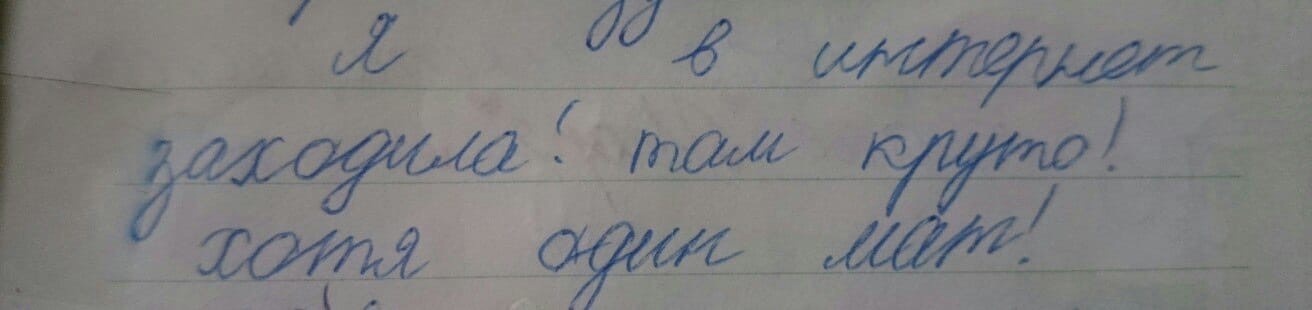 я в интернет
заходила! там круто!
хотя один мат!